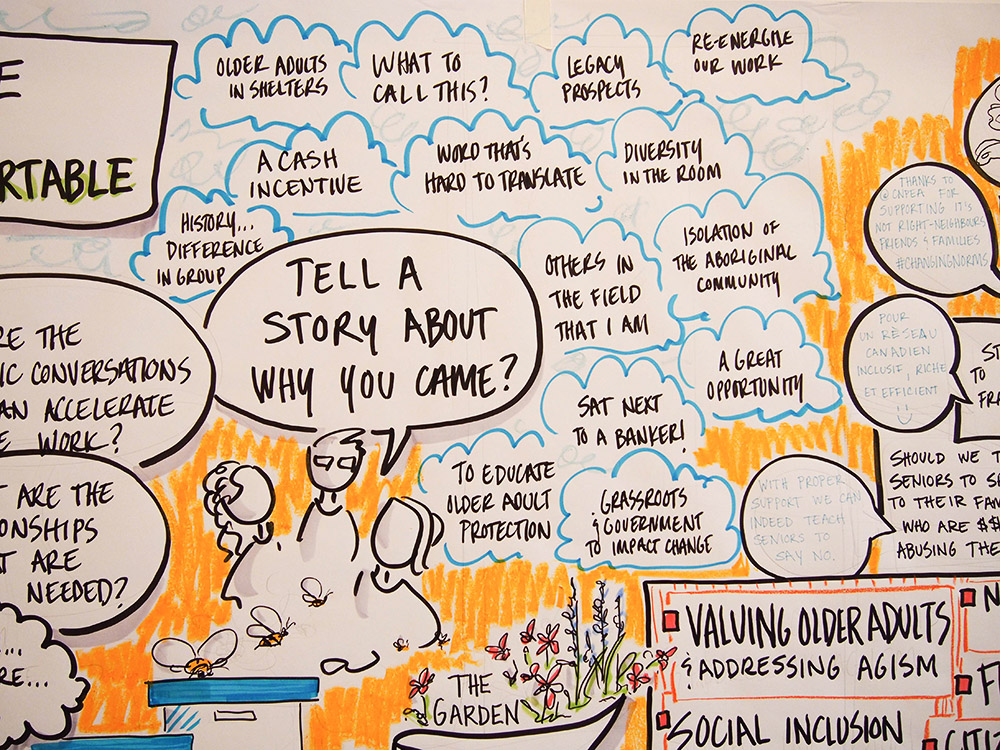 OLDER ADULTS
IN SHELTERS
WHAT TO
CALL THIS?
LEGACY
PROSPECTS
RE-ENERGIZE
OUR WORK
E
RTABLE
A CASH
INCENTIVE
WORD THAT'S
HARD TO TRANSLATE
DIVERSITY
IN THE ROOM
HISTORY...
DIFFERENCE
IN GROUP
TELL A
STORY ABOUT
WHY YOU CAME?
OTHERS IN
THE FIELD
THAT I AM
ISOLATION OF
THE ABORIGINAL
COMMUNITY
THANKS TO
@CNPEA FOR
SUPPORTING IT'S
NOT RIGHT-NEIGHBOURS
FRIENDS & FAMILIES
#CHANGINGNORMS
RE THE
IC CONVERSATIONS
AN ACCELERATE
E WORK?
A GREAT
OPPORTUNITY
POUR
UN RÈSEAU
CANADIEN
INCLUSIF, RICHE
ET EFFICIENT
ST
TO
FRA
SAT NEXT
TO A BANKER!
TO EDUCATE
OLDER ADULT
PROTECTION
GRASSROOTS
& GOVERNMENT
TO IMPACT CHANGE
WITH PROPER
SUPPORT WE CAN
INDEED TEACH
SENIORS TO
SAY NO.
SHOULD WE T
SENIORS TO SE
TO THEIR FAM
WHO ARE $$
ABUSING THE
T ARE THE
ONSHIPS
T ARE
NEEDED?
...
RE...
THE
GARDEN
VALUING OLDER ADULTS
& ADDRESSING AGISM
SOCIAL INCLUSION
N
F
CITI